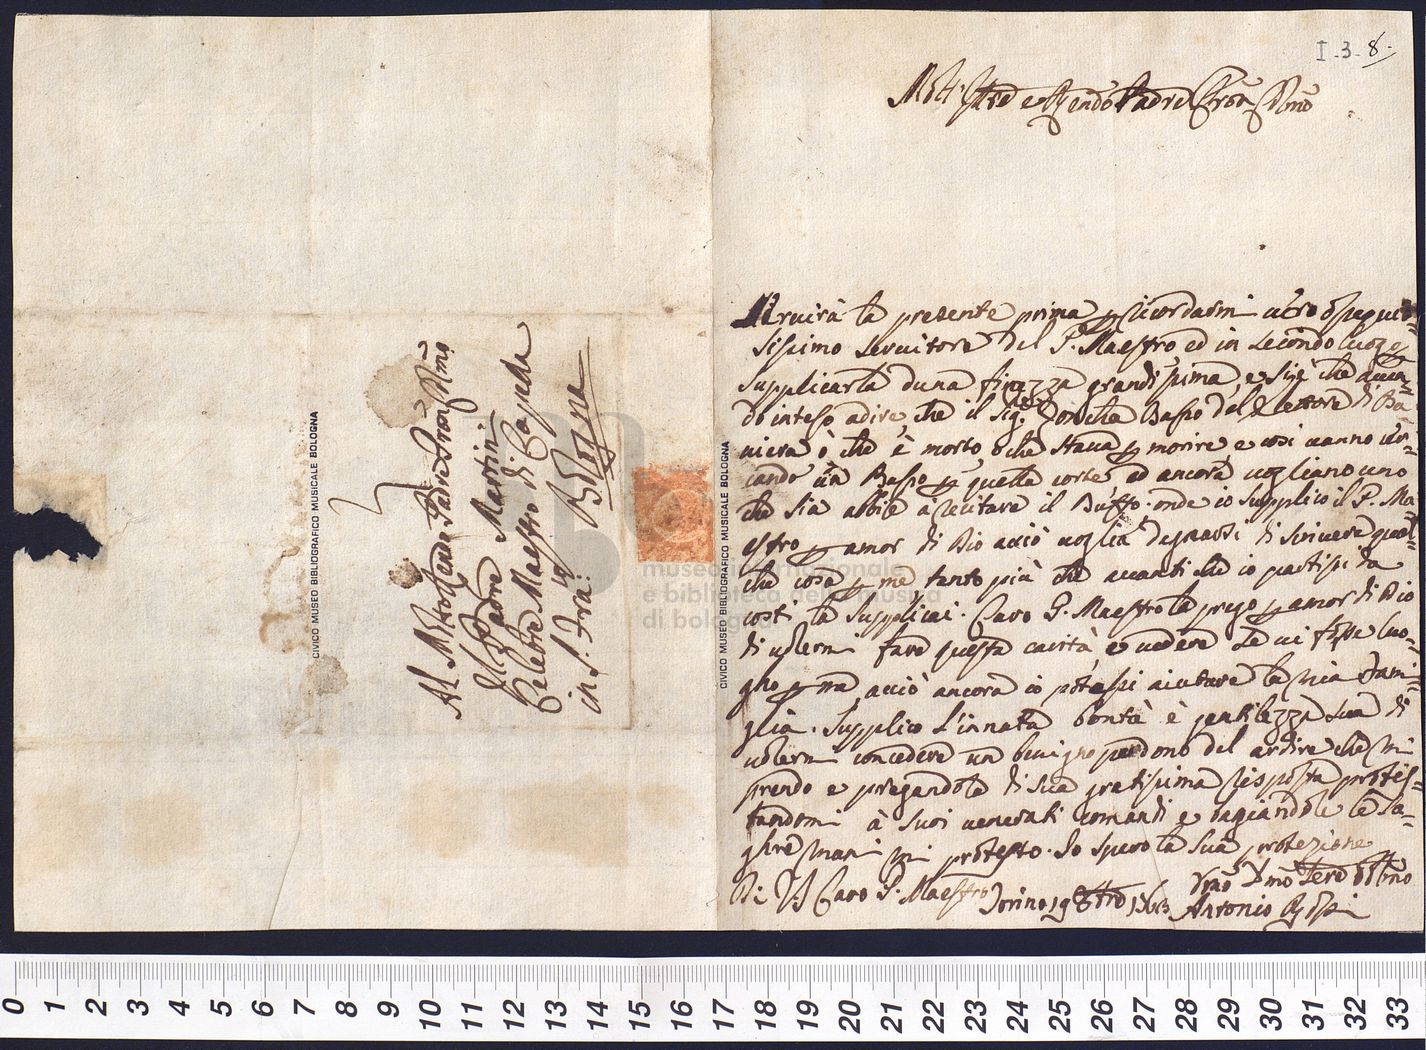 I-3-8-
Molt Illre e Rendo Padre Pron Colmo
Servirà la presente prima p ricordarmi vero ossequio=
sissimo servitore del P. Maestro ed in secondo luogo
supplicarla d'una finezza grandissima, e si è che aven=
do inteso a dire, che il Sigr. Basso del Elettore di Ba=
viera ò che è morto, o che stava p morire, e così vanno cer=
cando un Basso p quella corte ed ancora vogliano uno
che sia abbile à recitare il Buffo. onde io supplico il P. Ma
estro p amor di Dio acciò voglia degnarsi di scrivere qual=
che cosa p me tanto più che avanti che io partissi da
costì la supplicai. Caro P. Maestro la prego p amor di Dio
di volermi fare questa carità, e vedere se vi fosse luo=
gho p me, acciò ancora io potessi aiutare la mia Fami=
glia. Supplico l'innata bontà è gentilezza sua di
volermi concedere un benigno perdono del ardire che mi
prendo e pregandola di sua gratissima risposta protes=
tandomi à suoi venerati comandi e bagiandole le Sa=
ghre mani mi protesto. Io spero la sua protezione
Di V.S Caro P. Maestro Torino 19
Antonio Rossi
Al Molto Rendo Padre Pron Colmo
Il Padre Martini
Celebre Maestro di Capella
in S. Fran:
Bologna
CIVICO MUSEO BIBLIOGRAFICO MUSICALE BOLOGNA
CIVICO MUSEO BIBLIOGRAFICO MUSICALE BOLOGNA
museo internazionale
e biblioteca della musica
di bologna
0 1 2 3 4 5 6 7 8 9 10 11 12 13 14 15 16 17 18 19 20 21 22 23 24 25 26 27 28 29 30 31 32 33